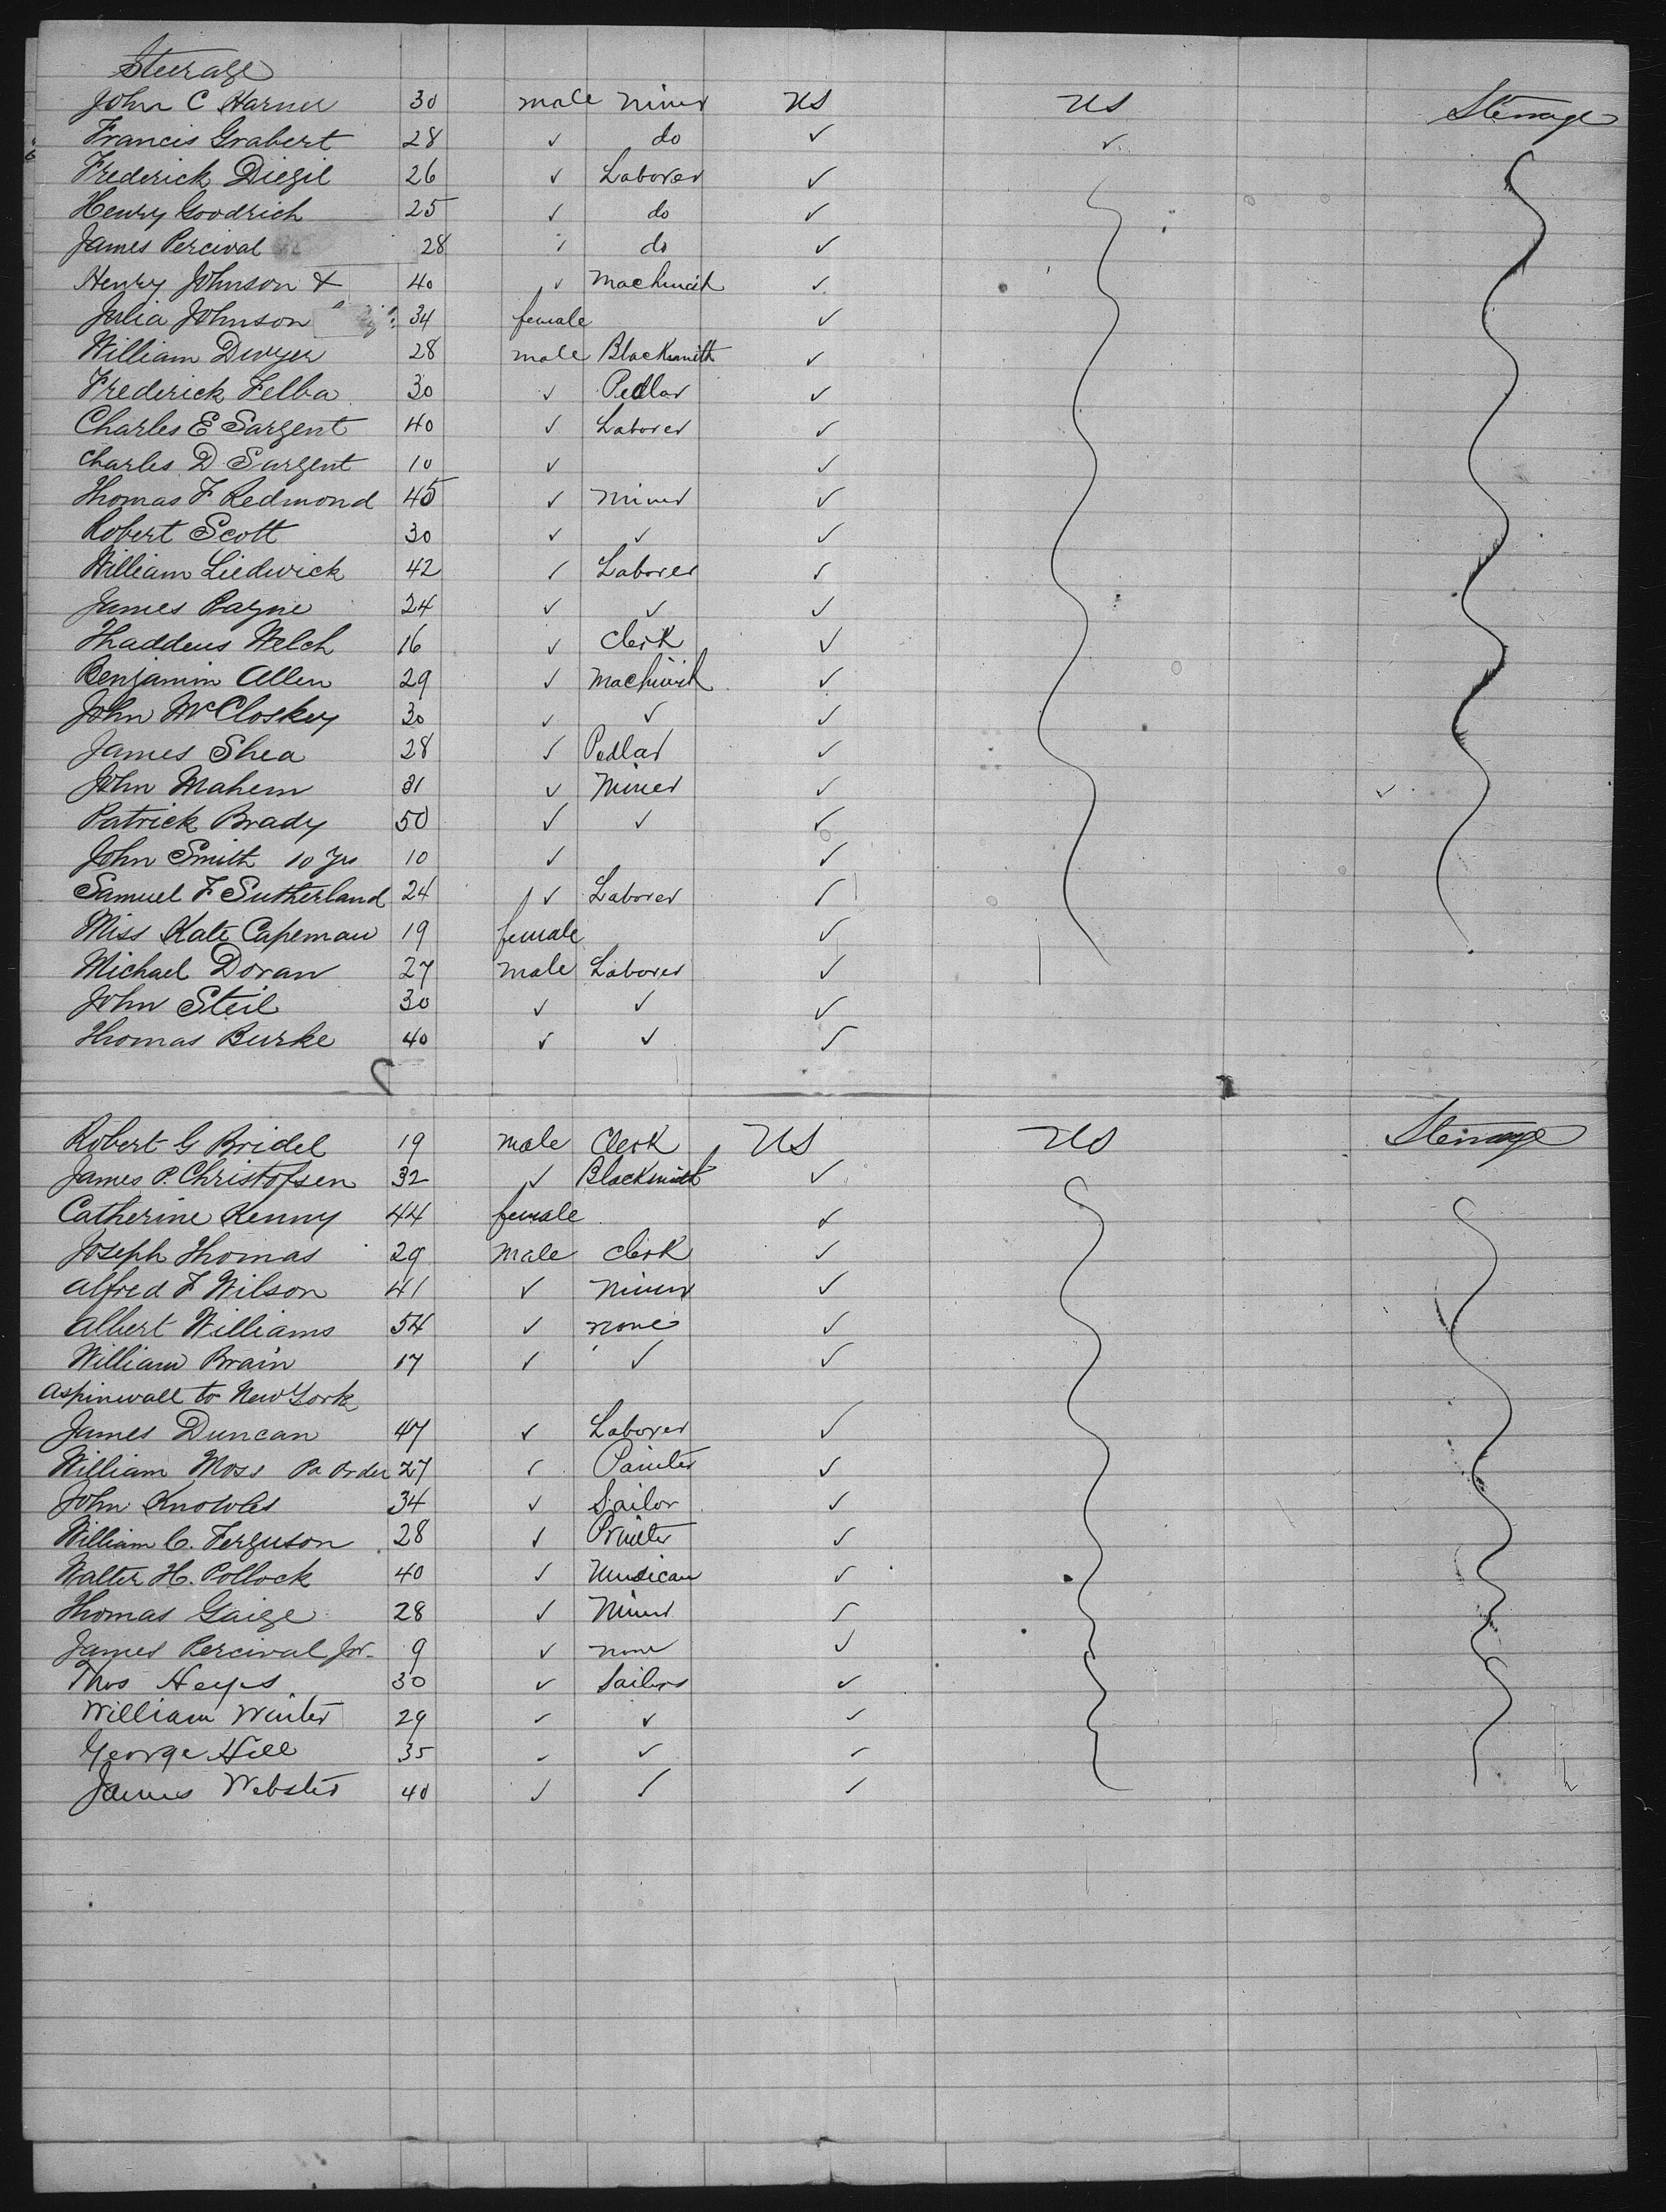 Steerage
John C Harner 30 male miner US US Steerage
Francis Grabert 28 ✓ do ✓ ✓
Frederick Diezil 26 ✓ Laborer ✓
Henry Goodrich 25 ✓ do ✓
James Percival 28 ✓ do ✓
Henry Johnson & 40 ✓ Machinist ✓
Julia Johnson 34 female ✓
William Dwyer 28 male Blacksmith ✓
Frederick Felba 30 ✓ Pedlar ✓
Charles E Sargent 40 ✓ Laborer ✓
Charles D Sargent 10 ✓ ✓
Thomas F Redmond 45 ✓ miner ✓
Robert Scott 30 ✓ ✓ ✓
William Liedwick 42 ✓ Laborer ✓
James Payne 24 ✓ ✓ ✓
Thaddeus Welch 16 ✓ Clerk ✓
Benjamin Allen 29 ✓ Machinist ✓
John McCloskey 30 ✓ ✓ ✓
James Shea 28 ✓ Pedlar ✓
John Mahern 31 ✓ Miner ✓ ✓
Patrick Brady 50 ✓ ✓ ✓
John Smith 10 Yrs 10 ✓ ✓
Samuel F Sutherland 24 ✓ Laborer ✓
Miss Kate Capeman 19 female ✓
Michael Doran 27 male Laborer ✓
John Steil 30 ✓ ✓ ✓
Thomas Burke 40 ✓ ✓ ✓
Robert G Bridel 19 male Clerk US US Steerage
James P. Christofsen 32 ✓ Blacksmith ✓
Catherine Kenny 44 female ✓
Joseph Thomas 29 male clerk ✓
Alfred F Wilson 41 ✓ miner ✓
Albert Williams 54 ✓ none ✓
William Brain 17 ✓ ✓ ✓
Aspinwall to New York
James Duncan 47 ✓ Laborer ✓
William Moss Pr Order 27 ✓ Painter ✓
John Knowles 34 ✓ Sailor ✓
William C. Ferguson 28 ✓ Printer ✓
Walter H. Pollock 40 ✓ Musician ✓
Thomas Gaige 28 ✓ Miner ✓
James Percival Jr. 9 ✓ none ✓
Thos Heyes 30 ✓ Sailors ✓
William Winter 29 ✓ ✓ ✓
George Hill 35 ✓ ✓ ✓
James Webster 40 ✓ ✓ ✓